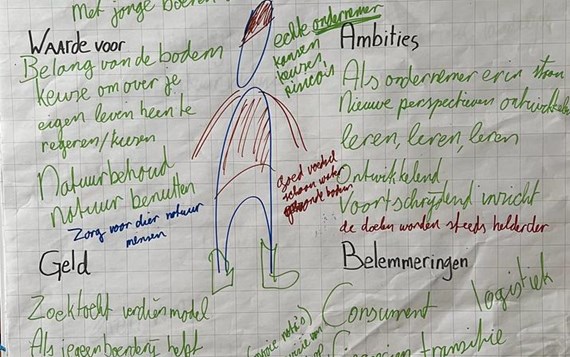 Met jonge boeren
Waarde voor
Belang van de bodem
keuze om over je
eigen leven heen te
regeren/kiezen
Natuurbehoud
natuur benutten
Zorg voor dier natuur
mensen
Geld
Zoektocht verdienmodel
Als iedereen boerderij helpt
echte ondernemer
kansen
keuzes
risico's
goed voedsel
schoon water
gezonde bodem
Ambities
Als ondernemer erin staan
Nieuwe perspectieven ontwikkelen
leren, leren, leren
Ontwikkelend
Voortschrijdend inzicht
de doelen worden steeds helderder
Belemmeringen
Consument logistiek
transitie